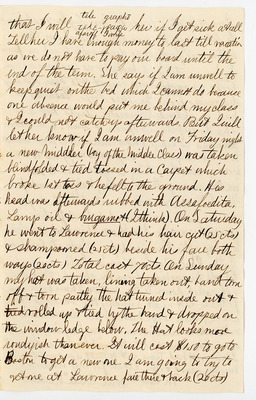 tele graphs
that I will her if I get sick & shall
Tell her I have enough money to last till vacation
as we don't have to pay our board until the
end of the term. She says if I am unwell to
keep quiet on the bed which I cannot do because
one absence would put me behind my class
& I could not catch up afterwards But I will
let her know if I am unwell on Friday night
a new Middler (boy of the Middle Class) was taken
blindfolded & tied tossed in a Carpet which
broke & he fell to the ground. His
head was afterwards rubbed with Assafoedita,
Lamp oil & (I think). On Saturday
he went to Lawrence & had his hair cut (25 cts)
& shampooned (25cts) beside his fare both
ways (20cts) Total cost 70cts On Sunday
my hat was taken, lining taken out, band torn
off & torn partly the hat turned inside out &
rolled up & tied by the band & dropped on
the window ledge below. The Hat looks more
than ever. It will cost to go to
Boston to get a new one I am going to try to
get me at Lawrence fare there & back (20cts)